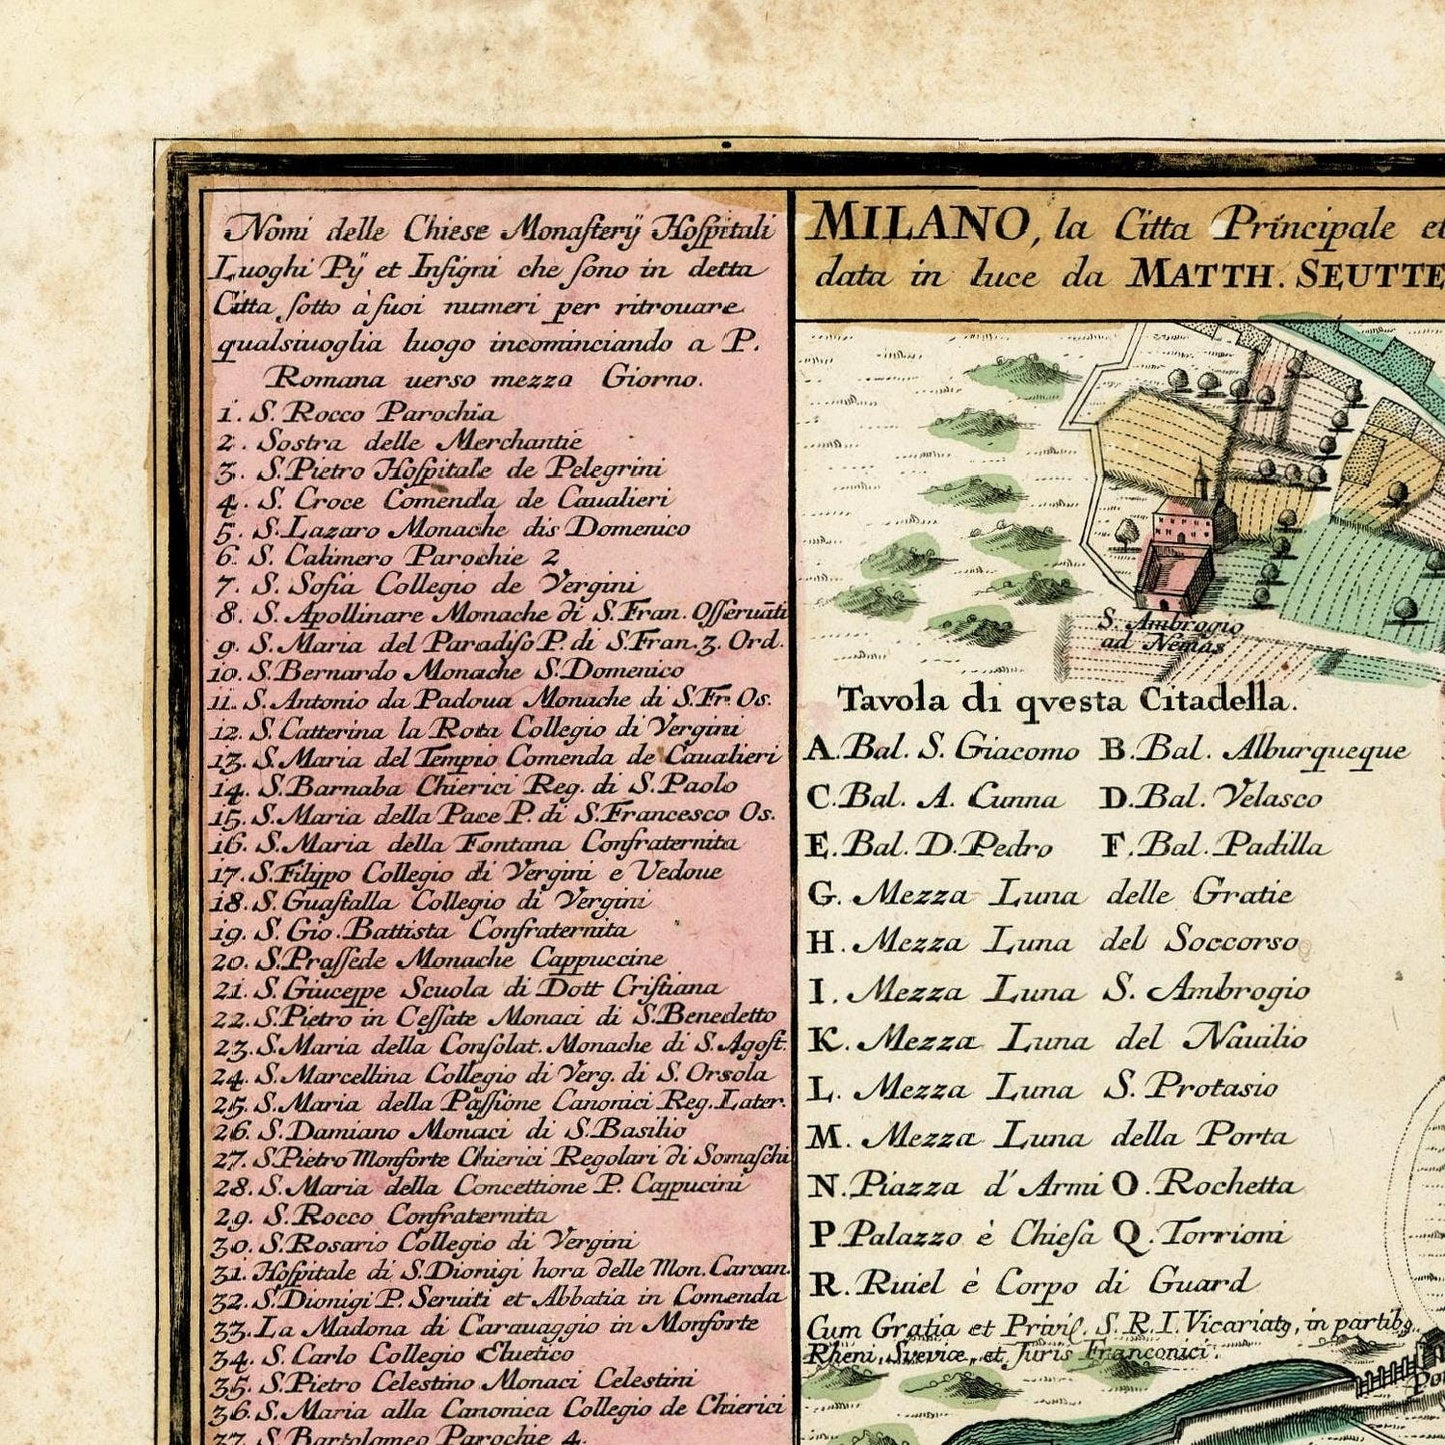 Nomi delle Chiese Monasterÿ Hospitali
Luoghi Pÿ et Insigni che sono in detta
Citta sotto à suoi numeri per ritrouare
qualsiuoglia luogo incominciando a P.
Romana uerso mezza Giorno.
1. S. Rocco Parochia
2. Sostra delle Merchantie
3. S. Pietro Hospitale de Pelegrini
4. S. Croce Comenda de Caualieri
5. S. Lazaro Monache dis Domenico
6. S. Calimero Parochie 2
7. S. Sofia Collegio de Vergini
8. S. Apollinare Monache di S. Fran. Osseruāti
9. S. Maria del Paradiso P. di S. Fran. 3. Ord.
10. S. Bernardo Monache S. Domenico
11. S. Antonio da Padoua Monache di S. Fr. Os.
12. S. Catterina la Rota Collegio di Vergini
13. S. Maria del Tempio Comenda de Caualieri
14. S. Barnaba Chierici Reg. di S. Paolo
15. S. Maria della Pace P. di S. Francesco Os.
16. S. Maria della Fontana Confraternita
17. S. Filippo Collegio di Vergini e Vedoue
18. S. Guastalla Collegio di Vergini
19. S. Gio. Battista Confraternita
20. S. Prassede Monache Cappuccine
21. S. Giuceppe Scuola di Dott Cristiana
22. S. Pietro in Cessate Monaci di S. Benedetto
23. S. Maria della Consolat. Monache di S. Agost.
24. S. Marcellina Collegio di Verg. di S. Orsola
25. S. Maria della Passione Canonici Reg. Later.
26. S. Damiano Monaci di S. Basilio
27. S. Pietro Monforte Chierici Regolari di Somaschi
28. S. Maria della Concettione P. Cappucini
29. S. Rocco Confraternita
30. S. Rosario Collegio di Vergini
31. Hospitale di S. Dionigi hora delle Mon. Carcan.
32. S. Dionigi P. Seruiti et Abbatia in Comenda
33. La Madona di Carauaggio in Monforte
34. S. Carlo Collegio Eluetico
35. S. Pietro Celestino Monaci Celestini
36. S. Maria alla Canonica Collegio de Chierici
37. S. Bartolomeo Parochie 4.
MILANO, la Citta Principale et
data in luce da MATTH. SEUTTE
S. Ambrogio
ad Nemas
Tavola di qvesta Citadella.
A. Bal. S. Giacomo B. Bal. Alburqueque
C. Bal. A. Cunna D. Bal. Velasco
E. Bal. D. Pedro F. Bal. Padilla
G. Mezza Luna delle Gratie
H. Mezza Luna del Soccorso
I. Mezza Luna S. Ambrogio
K. Mezza Luna del Nauilio
L. Mezza Luna S. Protasio
M. Mezza Luna della Porta
N. Piazza d'Armi O. Rochetta
P. Palazzo è Chiesa Q. Torrioni
R. Ruiel è Corpo di Guard
Cum Gratia et Privil. S. R. I. Vicariatg, in partibg
Rheni, Sveviæ, et Juris Franconici.
Por